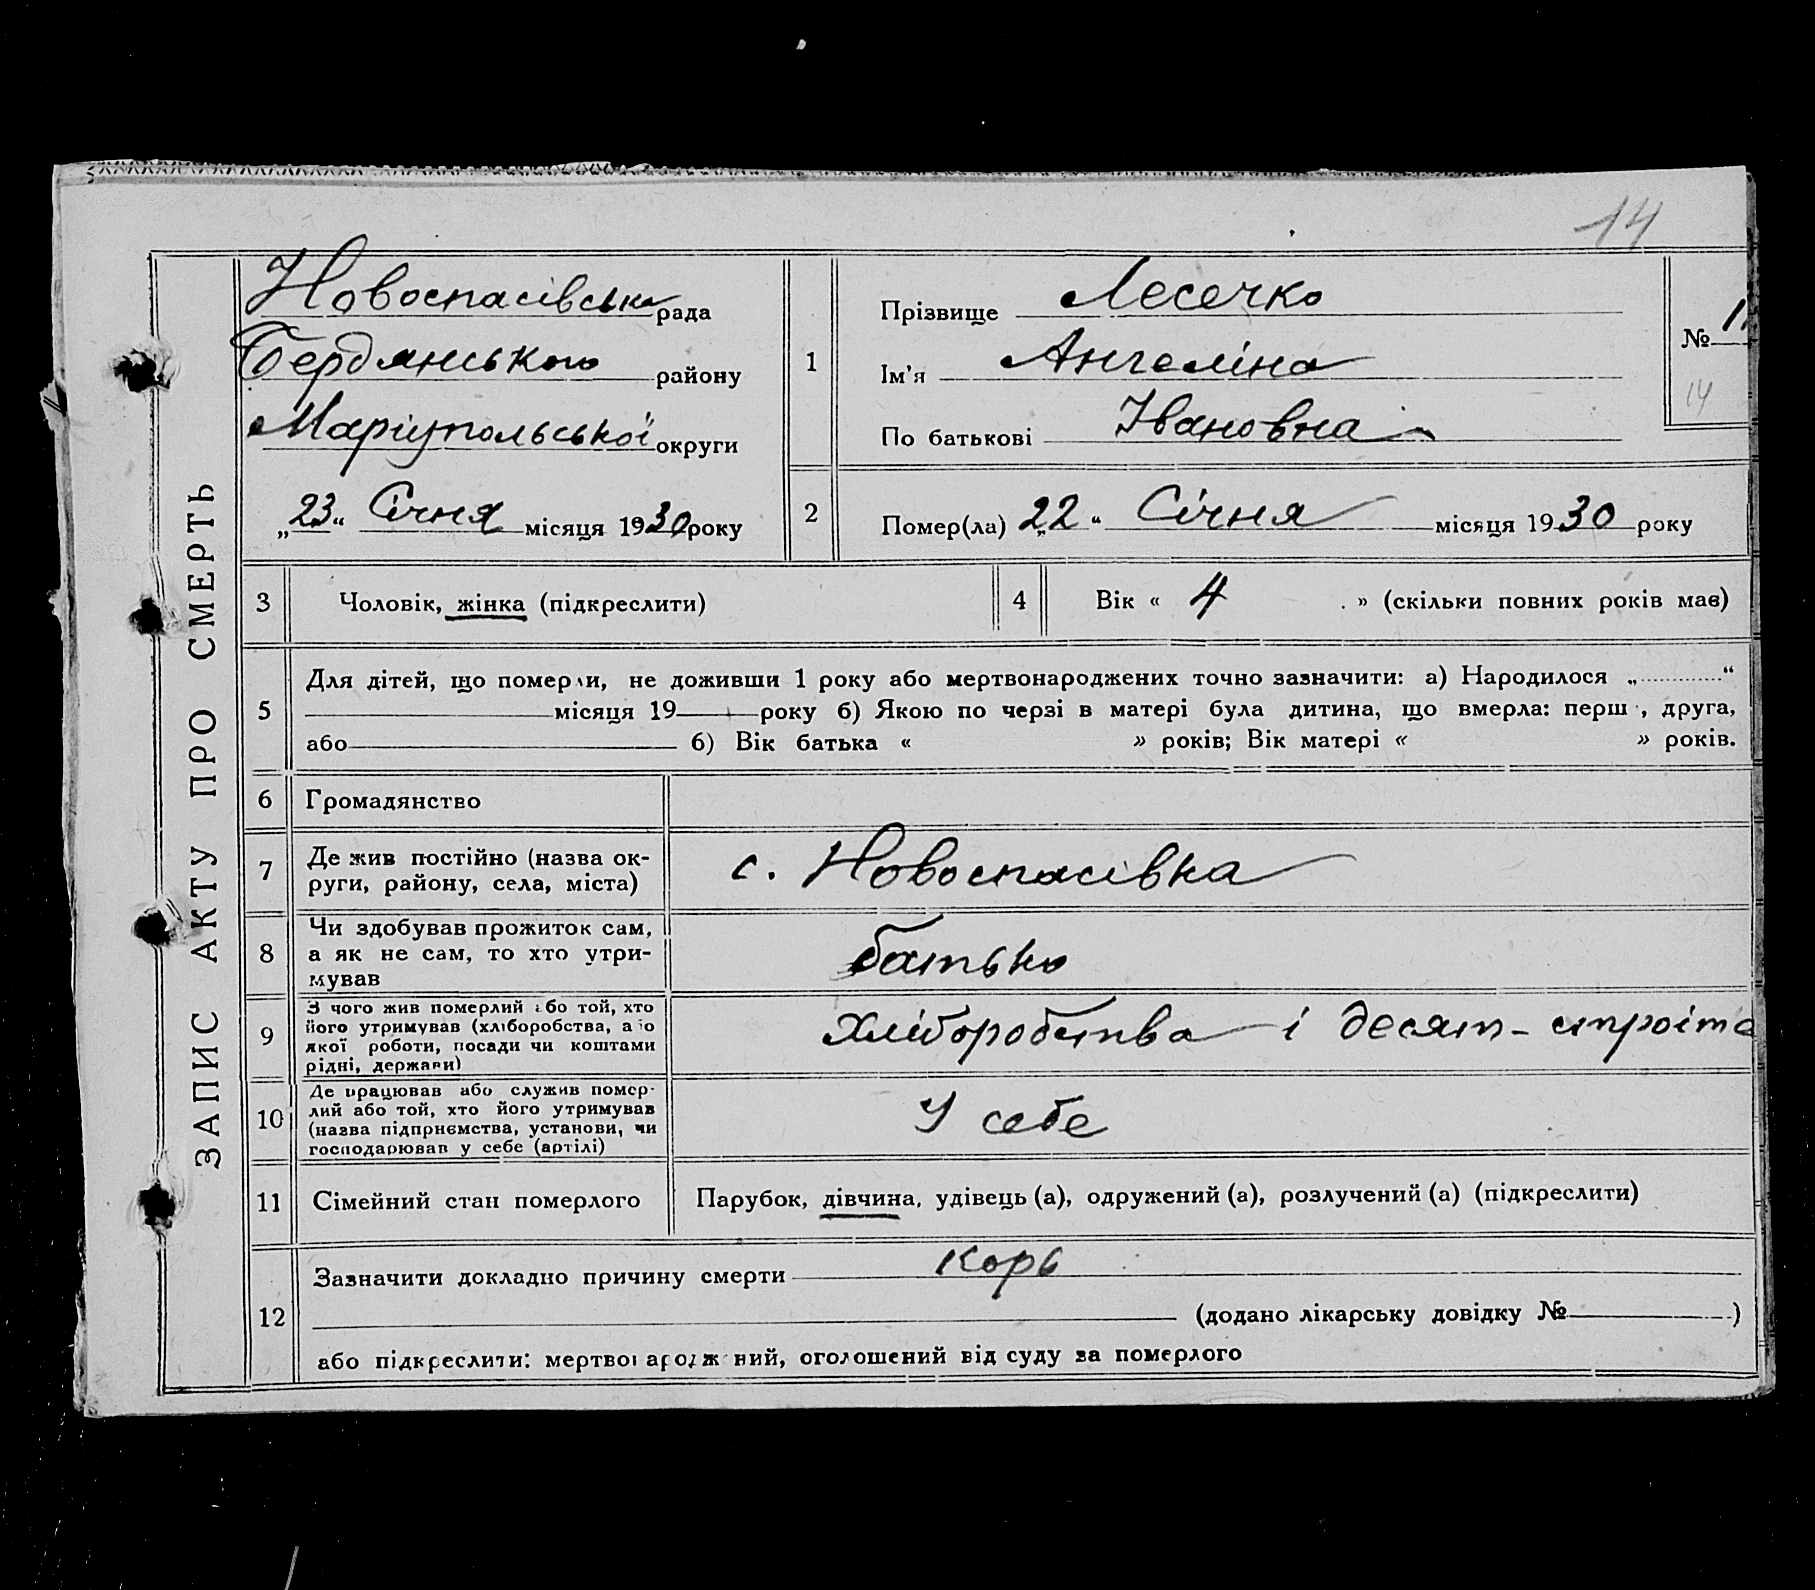 14
ЗАПИС АКТУ ПРО СМЕРТЬ
Новоспасівська рада
Бердянського району
Маріупольської округи
„23“ Січня місяця 1930 року
1
Прізвище Лесечко
Ім'я Ангеліна
По батькові Івановна
№
14
2
Помер(ла) „22“ Січня місяця 1930 року
3 Чоловік, жінка (підкреслити)
4 Вік « 4 » (скільки повних років має)
5
Для дітей, що померли, не доживши 1 року або мертвонароджених точно зазначити: а) Народилося „ “
місяця 19 року б) Якою по черзі в матері була дитина, що вмерла: перш , друга,
або б) Вік батька « » років; Вік матері « » років.
6 Громадянство
7
Де жив постійно (назва ок-
руги, району, села, міста)
с. Новоспасівка
8
Чи здобував прожиток сам,
а як не сам, то хто утри-
мував
батько
9
З чого жив померлий або той, хто
його утримував (хліборобства, або
якої роботи, посади чи коштами
рідні, держави)
Хліборобства і десят-
10
Де працював або служив помер-
лий або той, хто його утримував
(назва підприємства, установи, чи
господарював у себе (артілі)
У себе
11 Сімейний стан померлого
Парубок, дівчина, удівець (а), одружений (а), розлучений (а) (підкреслити)
12
Зазначити докладно причину смерти корь
(додано лікарську довідку № )
або підкреслити: мертвонароджений, оголошений від суду за померлого